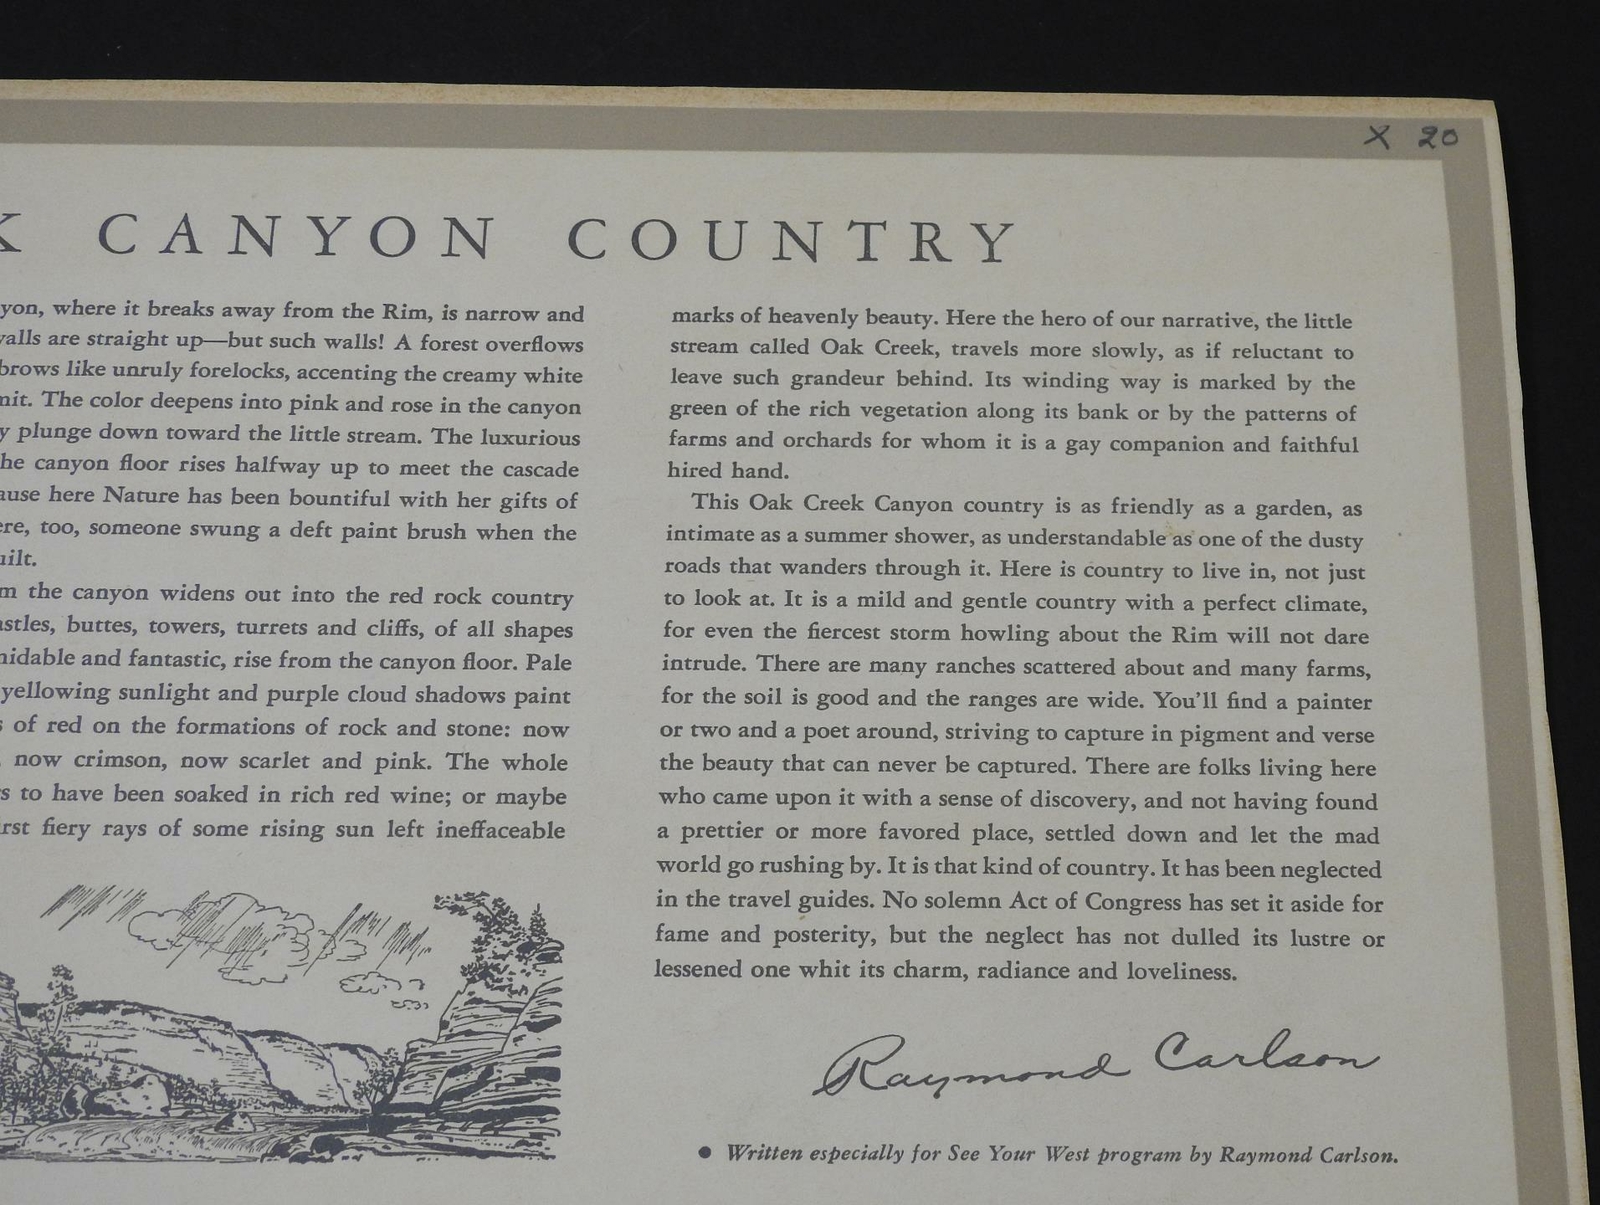 X 20
K CANYON COUNTRY
yon, where it breaks away from the Rim, is narrow and
walls are straight up—but such walls! A forest overflows
brows like unruly forelocks, accenting the creamy white
mit. The color deepens into pink and rose in the canyon
y plunge down toward the little stream. The luxurious
he canyon floor rises halfway up to meet the cascade
ause here Nature has been bountiful with her gifts of
ere, too, someone swung a deft paint brush when the
uilt.
m the canyon widens out into the red rock country
astles, buttes, towers, turrets and cliffs, of all shapes
midable and fantastic, rise from the canyon floor. Pale
yellowing sunlight and purple cloud shadows paint
s of red on the formations of rock and stone: now
, now crimson, now scarlet and pink. The whole
rs to have been soaked in rich red wine; or maybe
irst fiery rays of some rising sun left ineffaceable
marks of heavenly beauty. Here the hero of our narrative, the little
stream called Oak Creek, travels more slowly, as if reluctant to
leave such grandeur behind. Its winding way is marked by the
green of the rich vegetation along its bank or by the patterns of
farms and orchards for whom it is a gay companion and faithful
hired hand.
This Oak Creek Canyon country is as friendly as a garden, as
intimate as a summer shower, as understandable as one of the dusty
roads that wanders through it. Here is country to live in, not just
to look at. It is a mild and gentle country with a perfect climate,
for even the fiercest storm howling about the Rim will not dare
intrude. There are many ranches scattered about and many farms,
for the soil is good and the ranges are wide. You'll find a painter
or two and a poet around, striving to capture in pigment and verse
the beauty that can never be captured. There are folks living here
who came upon it with a sense of discovery, and not having found
a prettier or more favored place, settled down and let the mad
world go rushing by. It is that kind of country. It has been neglected
in the travel guides. No solemn Act of Congress has set it aside for
fame and posterity, but the neglect has not dulled its lustre or
lessened one whit its charm, radiance and loveliness.
Raymond Carlson
● Written especially for See Your West program by Raymond Carlson.